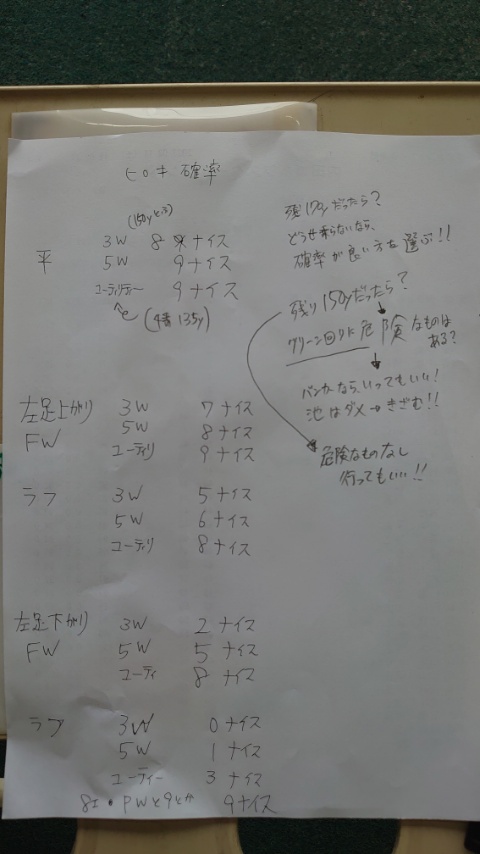 ヒロキ 確率
(150yとぶ)
3W 8 ナイス
平 5W 9ナイス
ユーティリティー 9ナイス
(4番 135y)
左足上がり 3W 7ナイス
FW 5W 8ナイス
ユーティリ 9ナイス
ラフ 3W 5ナイス
5W 6ナイス
ユーティリ 8ナイス
左足下がり 3W 2ナイス
FW 5W 5ナイス
ユーティ 8ナイス
ラフ 3W 0ナイス
5W 1ナイス
ユーティー 3ナイス
8I・PWと9とか 9ナイス
残170yだったら?
どうせ乗らないなら、
確率が良い方を選ぶ!!
残り150yだったら?
グリーン回りに危険なものは
ある?
バンカーなら、いってもいい!
池はダメ→きざむ!!
危険なものなし
行ってもいい!!